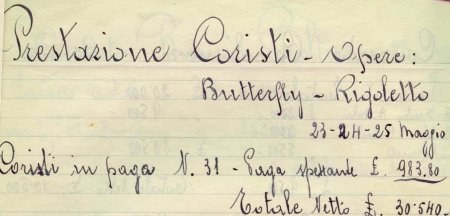 Prestazione Coristi - Opere:
Butterfly - Rigoletto
23-24-25 Maggio
Coristi in paga N. 31 - Paga spettante £. 983.80
Totale Netto £. 30.540.